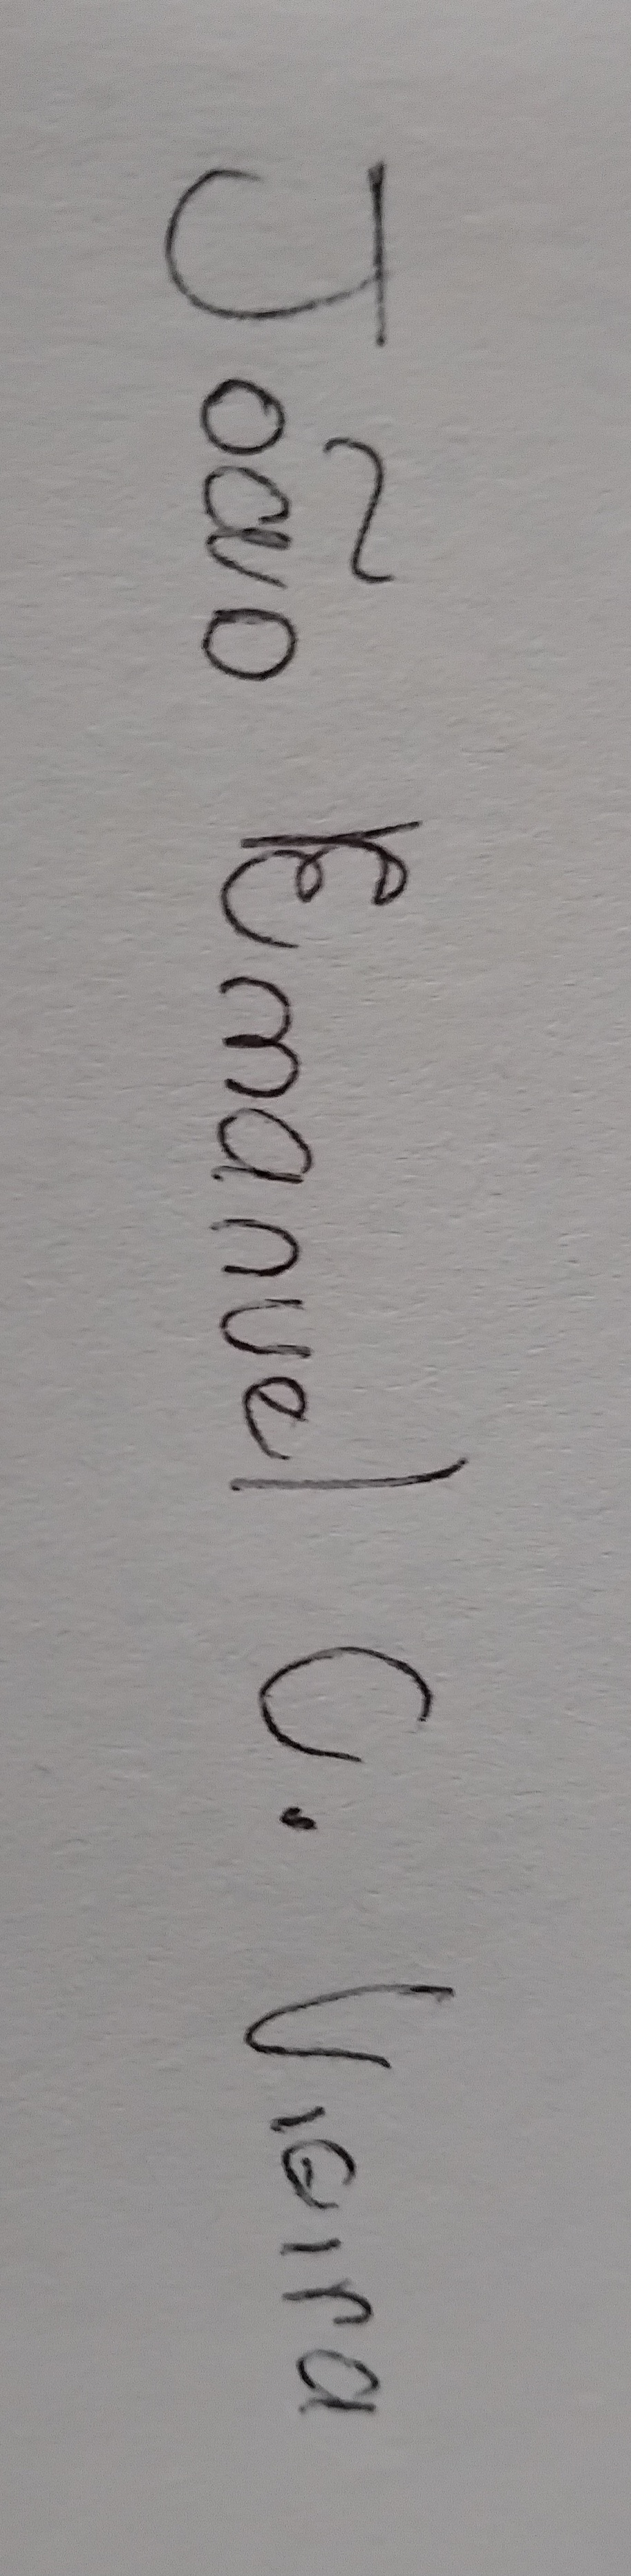 João Emanuel C. Vieira